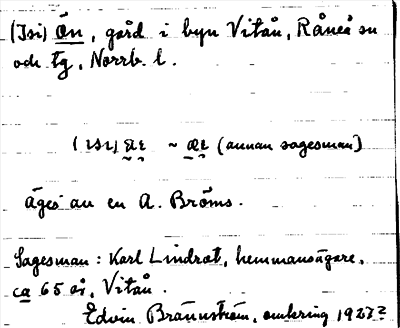 (Isi) Ön, gård i byn Vitån, Råneå sn
och tg, Norrb. l.
(annan sagesman)
Äges av en A. Broms.
Sagesman: Karl Lindrot, hemmansägare,
ca 65 år, Vitån.
Edvin Brännström, omkring 1927?